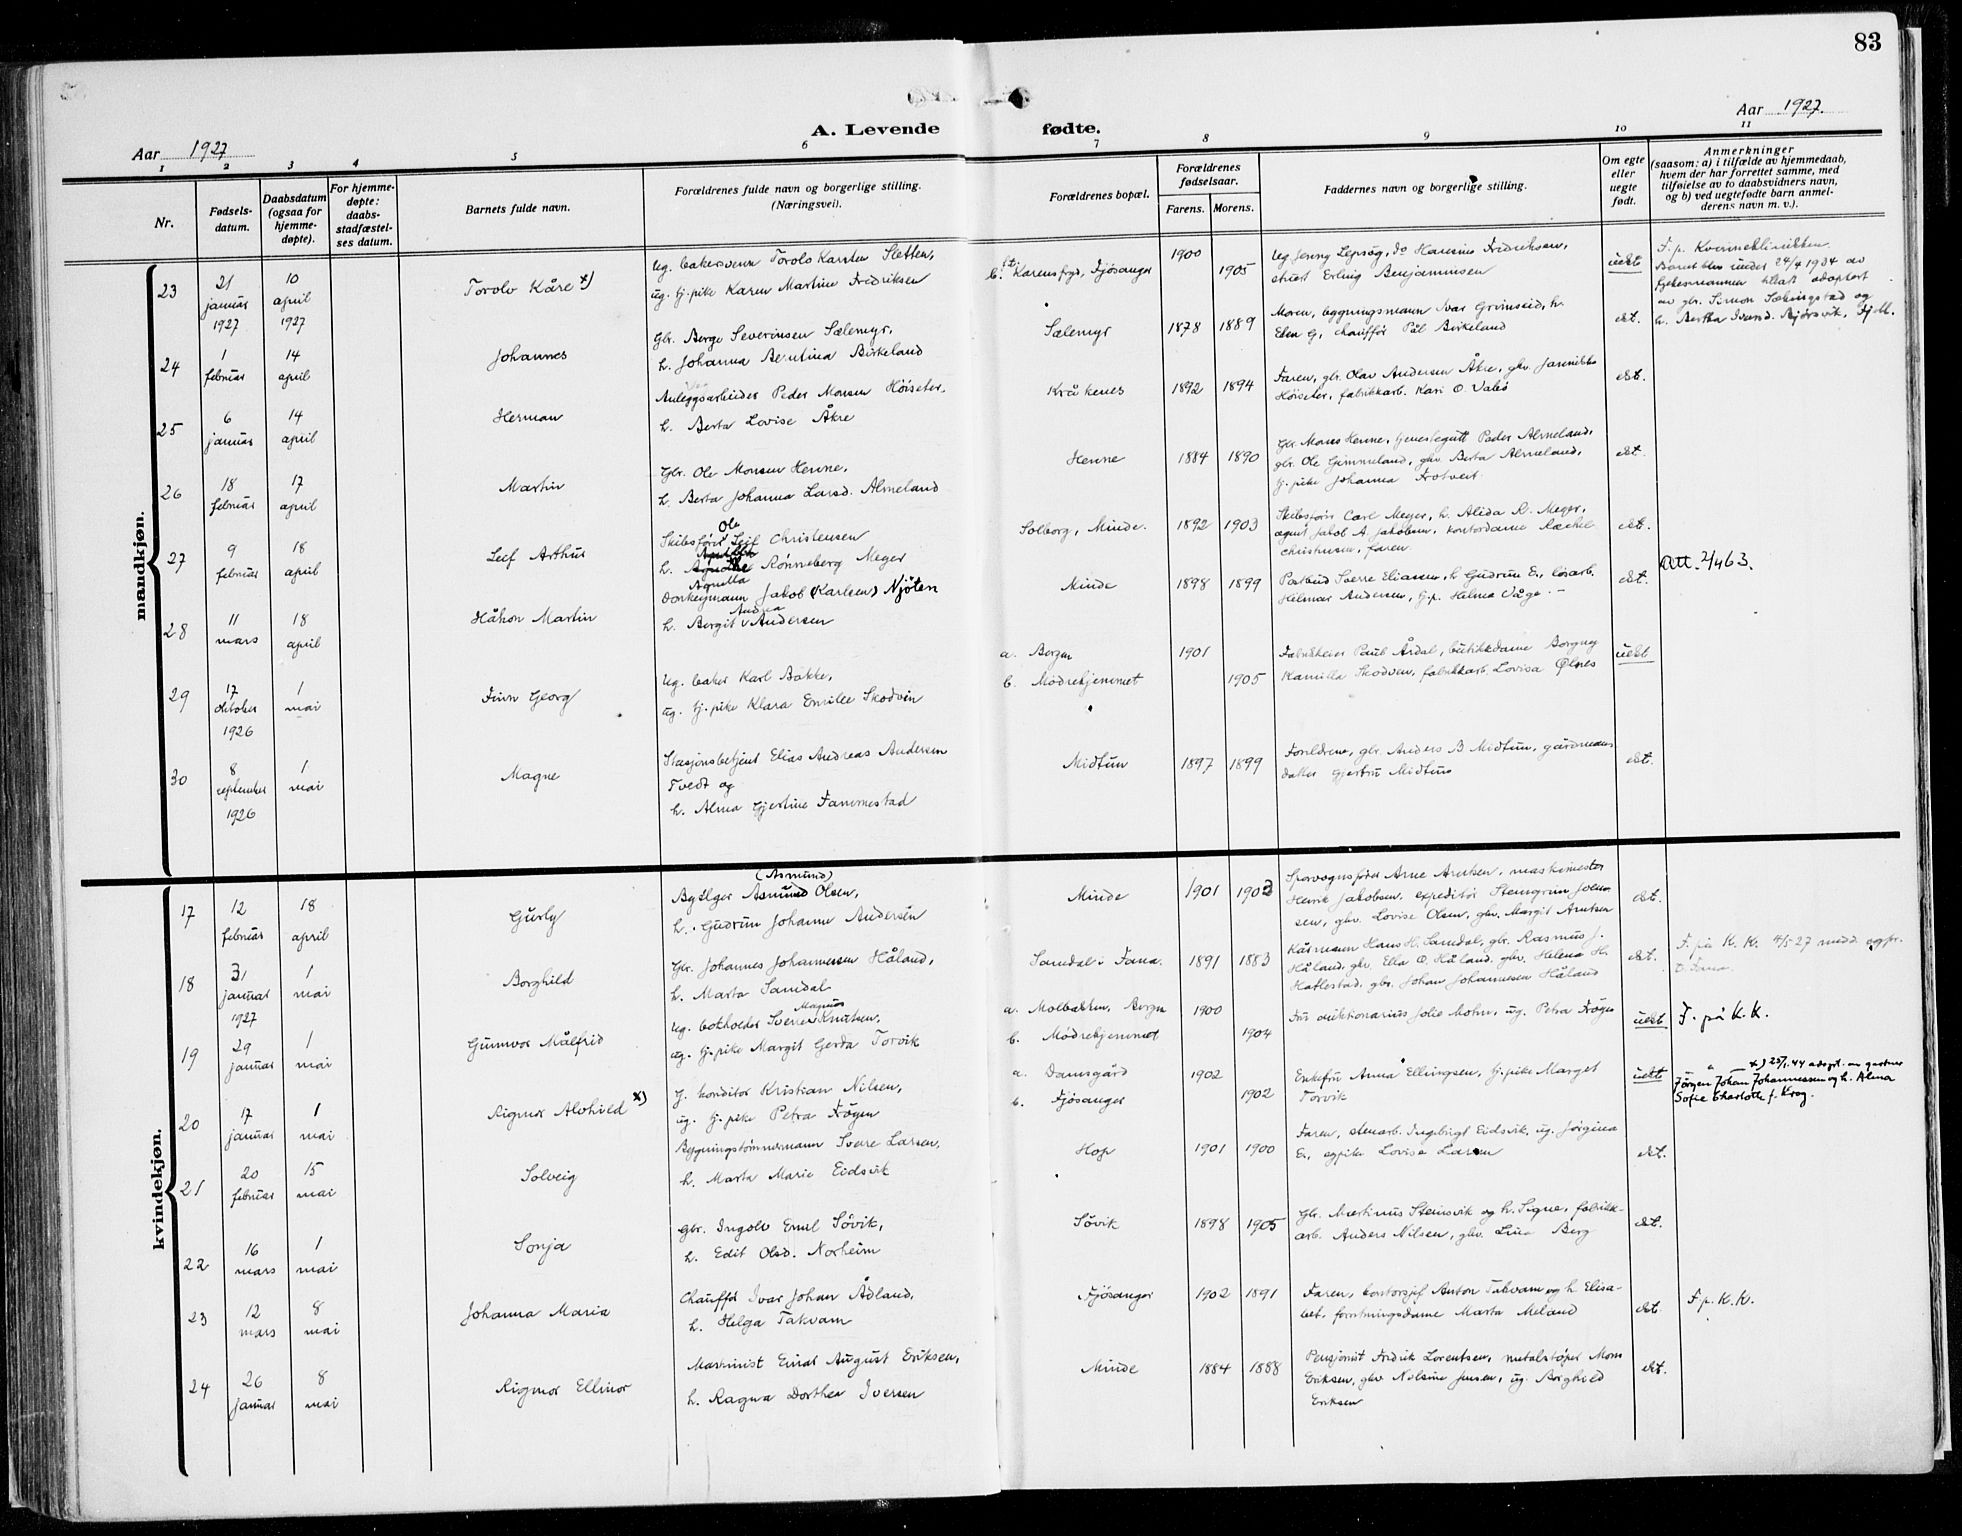 83
Aar 1927
A. Levende fødte.
Aar 1927.
1 2 3 4 5 6 7 8 9 10 11
Nr.
Fødsels-
datum.
Daabsdatum
(ogsaa for
hjemme-
døpte).
For hjemme-
døpte:
daabs-
stadfæstel-
ses datum.
Barnets fulde navn.
Forældrenes fulde navn og borgerlige stilling.
(Næringsvei).
Forældrenes bopæl.
Forældrenes
fødselsaar.
Farens. Morens.
Faddernes navn og borgerlige stilling.
Om egte
eller
uegte
født.
Anmerkninger
(saasom: a) i tilfælde av hjemmedaab,
hvem der har forrettet samme, med
tilføielse av to daabsvidners navn,
og b) ved uegtefødte barn anmel-
derens navn m. v.).
mandkjøn.
23
21
januar
1927
10
april
1927
Torolv Kåre x)
Ug. bakersvenn Torolv Karsten Sletten,
ug. tj.pike Karen Martine Fredriksen
Fjösanger
1900
1905
Ug Jenny Lepsøg,
Erling Benjaminsen
uekt
F. p. Kvinneklinikken.
24
1
februar
14
april
Johannes
Gbr. Berge Severinsen Sælemyr,
h. Johanna Bertina Birkeland
Sælemyr
1878 1889
Moren, bygningsmann Ivar Grimseid, h.
Elen G, chaufför Pål Birkeland
ekt.
25
6
januar
14
april
Herman
Anleggsarbeider Peder Monsen Höiseter,
h. Berta Lovise Åkre
Kråkenes
1892 1894
Faren, gbr. Olav Andersen Åkre, gkv. Jannikke
Höiseter, fabrikkarb. Kari O.
ekt.
26
18
februar
17
april
Martin
Gbr. Ole Monsen Henne,
h. Berta Johanna Larsd. Almeland
Henne
1884 1890
Gbr. Mons Henne, tjenestegutt Peder Almeland,
gbr. Ole Gimmeland, gkv. Berta Almeland,
tj.pike Johanna Trotveit.
ekt.
27
9
februar
18
april
Leif Arthur
Ole
Skibsförer Leif Christensen
h. Rønneberg Meyer
Agnella
Solborg, Minde.
1892 1903
Skibsförer Carl Meyer, h. Alida R. Meyer,
agent Jakob A. Jakobsen, kontordame Rachel
Christensen, faren.
ekt.
28
11
mars
18
april
Håkon Martin
Donkeymann Jakob (Karlsen) Njöten
Andrea
h. Bergit Andersen
Minde
1898 1899
Postbud Sverre Eliassen, h Gudrun E., lösarb.
Hilmar Andersen, tj.p. Helma Våge.
ekt.
Att. 2/463.
29
17
oktober
1926
1
mai
Finn Georg
Ug. baker Karl Bakke,
ug. tj.pike Klara Emilie Skodvin
a. Bergen
b. Mödrehjemmet
1901
1905
Fabrikkeier Paul Årdal, butikkdame Borgny
Kamilla Skodven, fabrikkarb. Lovisa Ølnes
uekt
30
8
september
1926
1
mai
Magne
Stasjonsbetjent Elias Andreas Andersen
Tvedt og
h. Alma Gjertine Fammestad
Midtun
1897 1899
Foreldrene, gbr. Anders B Midtun, gårdmans
datter Gjertru Midtun
ekt.
kvindekjøn.
17
12
februar
18
april
Gurly
(Asmund)
Asmund Olsen,
h. Gudrun Johanne Andersen
Minde
1901 1903
Sporvognsförer Arne Arntsen, maskinmester
Henrik Jakobsen, expeditör Steingrim Iven-
sen, gkv. Lovise Olsen, gkv. Margit Arntsen
ekt.
18
31
januar
1927
1
mai
Borghild
Gbr. Johannes Johannessen Håland,
h. Marta Samdal
Samdal i Fana.
1891 1883
Kårmann Hans H. Samdal, gbr. Rasmus J.
Håland, gkv. Ella O. Håland, gkv. Helena H.
Hatlestad, gbr. Johan Johannesen Håland
ekt.
F. på K. K. 4/5 27
19
29
januar
1
mai
Gunnvor Målfrid
Magnus
Ug. bokholder Sverre Knutsen,
ug. tj.pike Margit Gerda Torvik
a. Molbakken, Bergen
b. Mödrehjemmet
1900
1904
Fru auktionarius Jolie Mohn, ug. Petra Frøyen
uekt
F. på K. K.
20
17
januar
1
mai
Rigmor Alvhild x)
konditor Kristian Nilsen,
ug. tj.pike Petra Frøyen
a. Damsgård
b. Fjösanger
1902
1902
Enkefru Anna Ellingsen, tj.pike Margit
Torvik
uekt
x) 25/1.44 adopt. av gartner
Jörgen Johan Johannessen og h. Alma
Sofie Charlotte f. Krog.
21
20
februar
15
mai
Solveig
Bygningstömmermann Sverre Larsen,
h. Marta Marie Eidsvik
Hop
1901 1900
Faren, stenarb. Ingebrigt Eidsvik, ug. Jörgina
E., Lovise Larsen
ekt.
22
16
mars
1
mai
Sonja
Gbr. Ingolv Emil Sövik,
h. Edit Olsd. Norheim
Sövik
1898 1905
Gbr. Martinus Steinsvik og h. Signe, fabrikk-
arb. Anders Nilsen, gkv. Lina Berg
ekt.
23
12
mars
8
mai
Johanna Maria
Chaufför Ivar Johan Ådland,
h. Helga Takvam
Fjösanger
1902 1891
Faren, kontorsjef Anton Takvam og h Elisa-
bet, forretningsdame Marta Meland
ekt.
F. p. K. K.
24
26
januar
8
mai
Rigmor Ellinor
Maskinist Einar August Eriksen,
h. Ragna Dorthea Iversen
Minde
1884 1888
Pensjonist Fredrik Lorentsen, metalstöper Mons
Eriksen, gkv Nilsine Jensen, ug. Borghild
Eriksen
ekt.